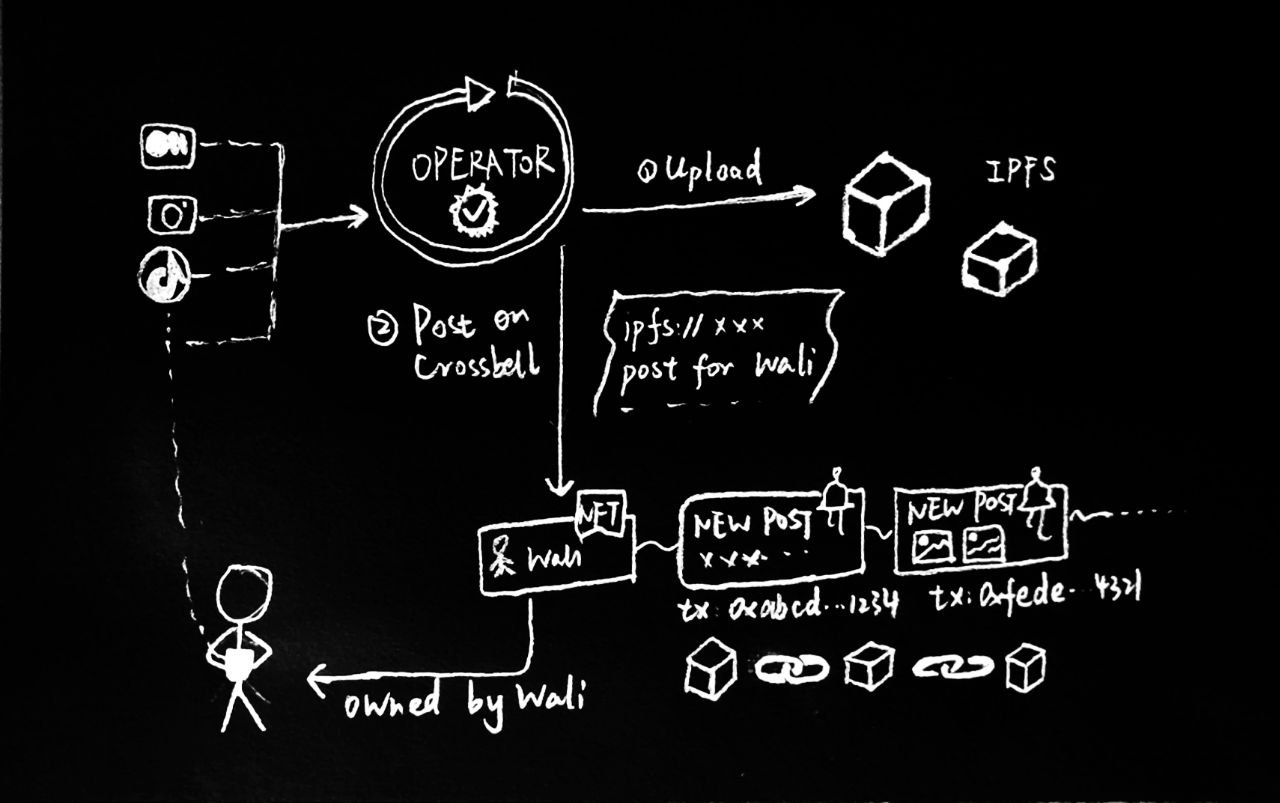 OPERATOR
① Upload
IPFS
② Post on
Crossbell
ipfs:// xxx
post for Wali
NFT
Wali
NEW POST
xxx...
tx: 0xabcd...1234
NEW POST
tx: 0xfede...4321
owned by Wali